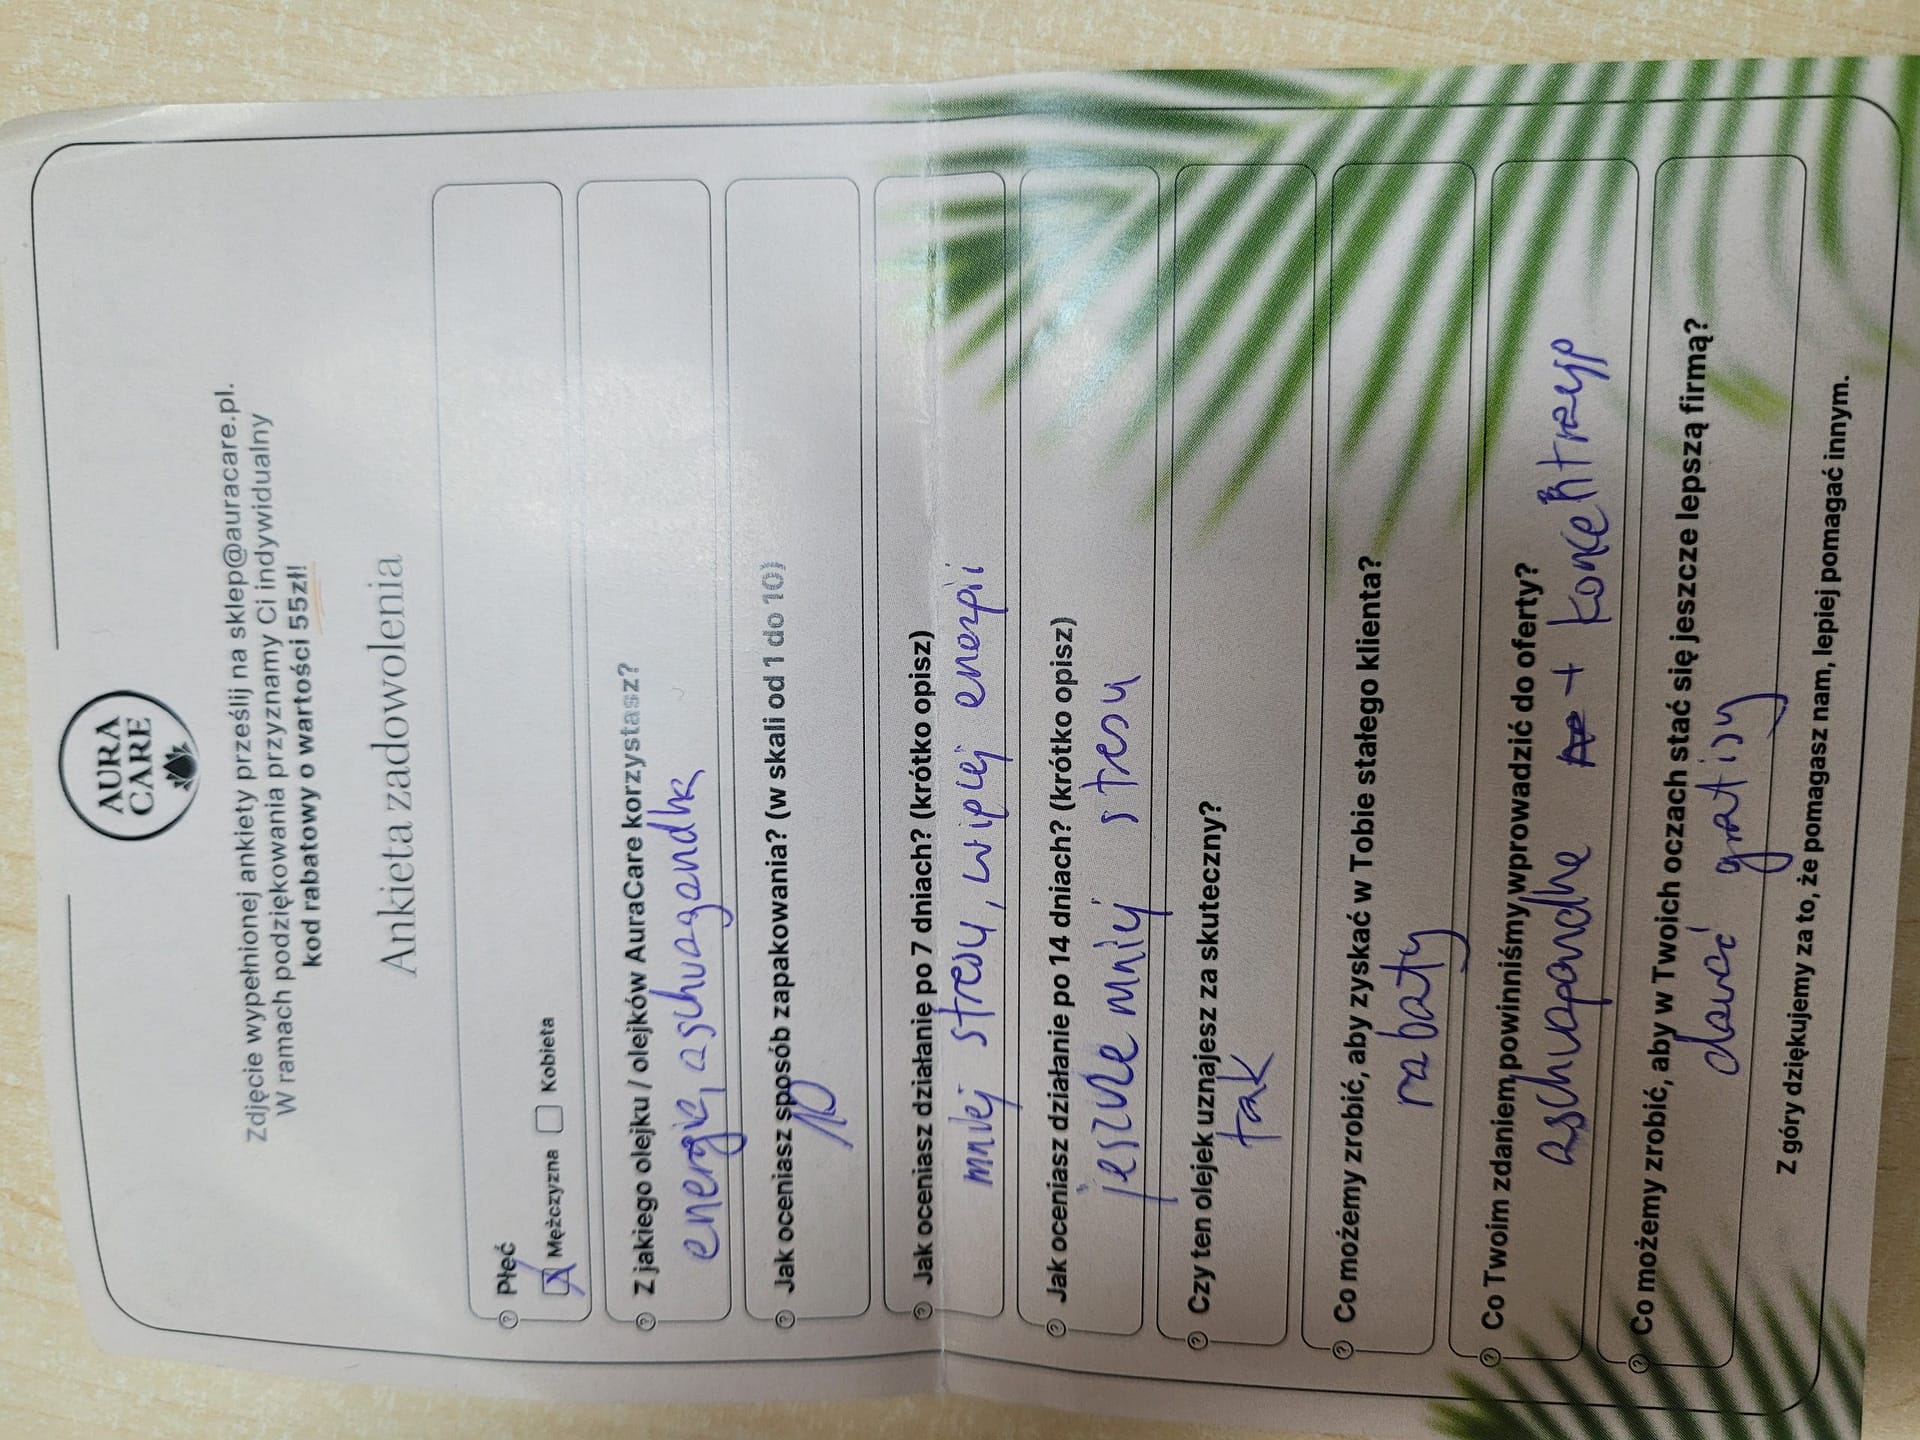 AURA
CARE
Zdjęcie wypełnionej ankiety prześlij na sklep@auracare.pl.
W ramach podziękowania przyznamy Ci indywidualny
kod rabatowy o wartości 55zł!
Ankieta zadowolenia
Płeć
Mężczyzna Kobieta
Z jakiego olejku / olejków AuraCare korzystasz?
energia, ashwagandha
Jak oceniasz sposób zapakowania? (w skali od 1 do 10)
10
Jak oceniasz działanie po 7 dniach? (krótko opisz)
mniej stresu, więcej energii
Jak oceniasz działanie po 14 dniach? (krótko opisz)
jeszcze mniej stresu
Czy ten olejek uznajesz za skuteczny?
tak
Co możemy zrobić, aby zyskać w Tobie stałego klienta?
rabaty
Co Twoim zdaniem powinniśmy wprowadzić do oferty?
+
Co możemy zrobić, aby w Twoich oczach stać się jeszcze lepszą firmą?
dawać gratisy
Z góry dziękujemy za to, że pomagasz nam, lepiej pomagać innym.